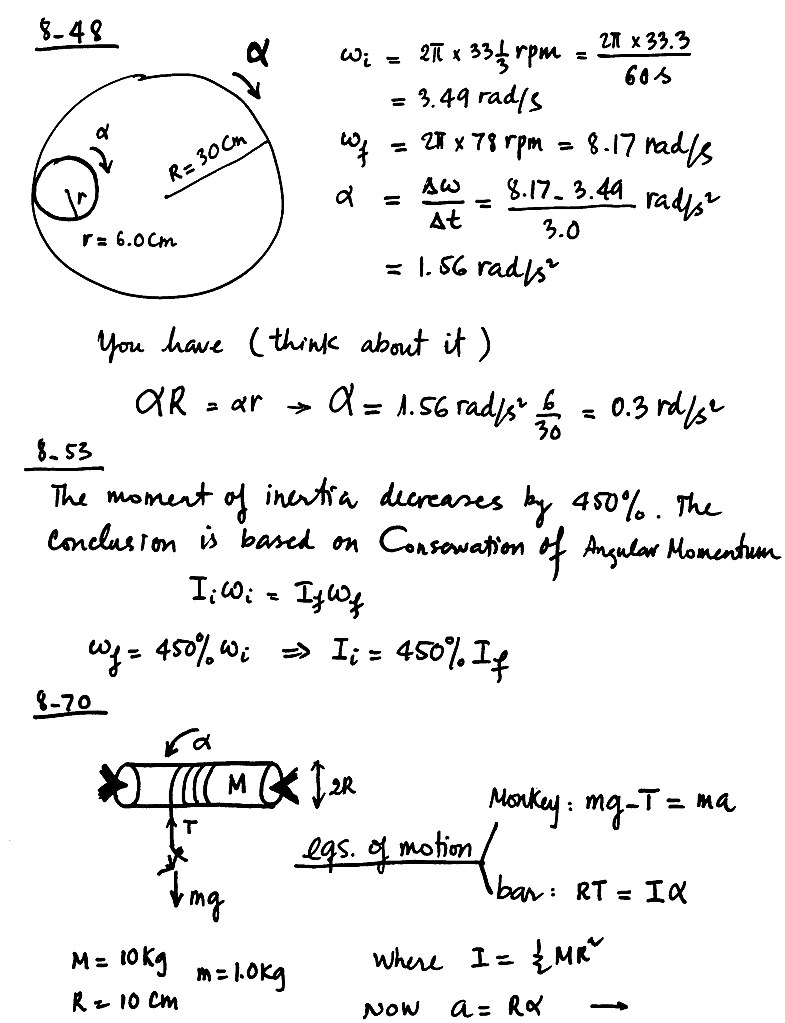 8-48
α
α
R = 30 Cm
r
r = 6.0 Cm
ωi = 2π x 33 1/3 rpm = 2π x 33.3 / 60 s
= 3.49 rad/s
ωf = 2π x 78 rpm = 8.17 rad/s
α = Δω/Δt = 8.17 - 3.49 / 3.0 rad/s²
= 1.56 rad/s²
You have (think about it)
αR = αr → α = 1.56 rad/s² 6/30 = 0.3 rd/s²
8-53
The moment of inertia decreases by 450%. The
Conclusion is based on Conservation of Angular Momentum
Iiωi = Ifωf
ωf = 450% ωi ⇒ Ii = 450% If
8-70
α
M
2R
T
mg
eqs. of motion
Monkey: mg - T = ma
bar: RT = Iα
M = 10 Kg m = 1.0 Kg
R = 10 Cm
Where I = ½ MR²
NOW a = Rα →